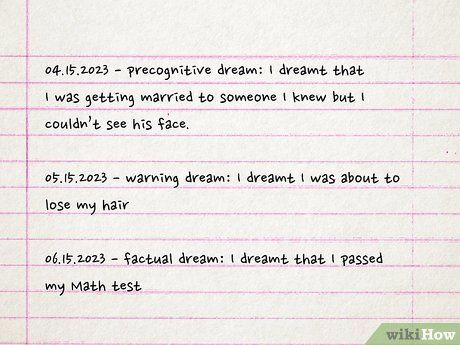 04.15.2023 - precognitive dream: I dreamt that
I was getting married to someone I knew but I
couldn't see his face.
05.15.2023 - warning dream: I dreamt I was about to
lose my hair
06.15.2023 - factual dream: I dreamt that I passed
my Math test
wikiHow